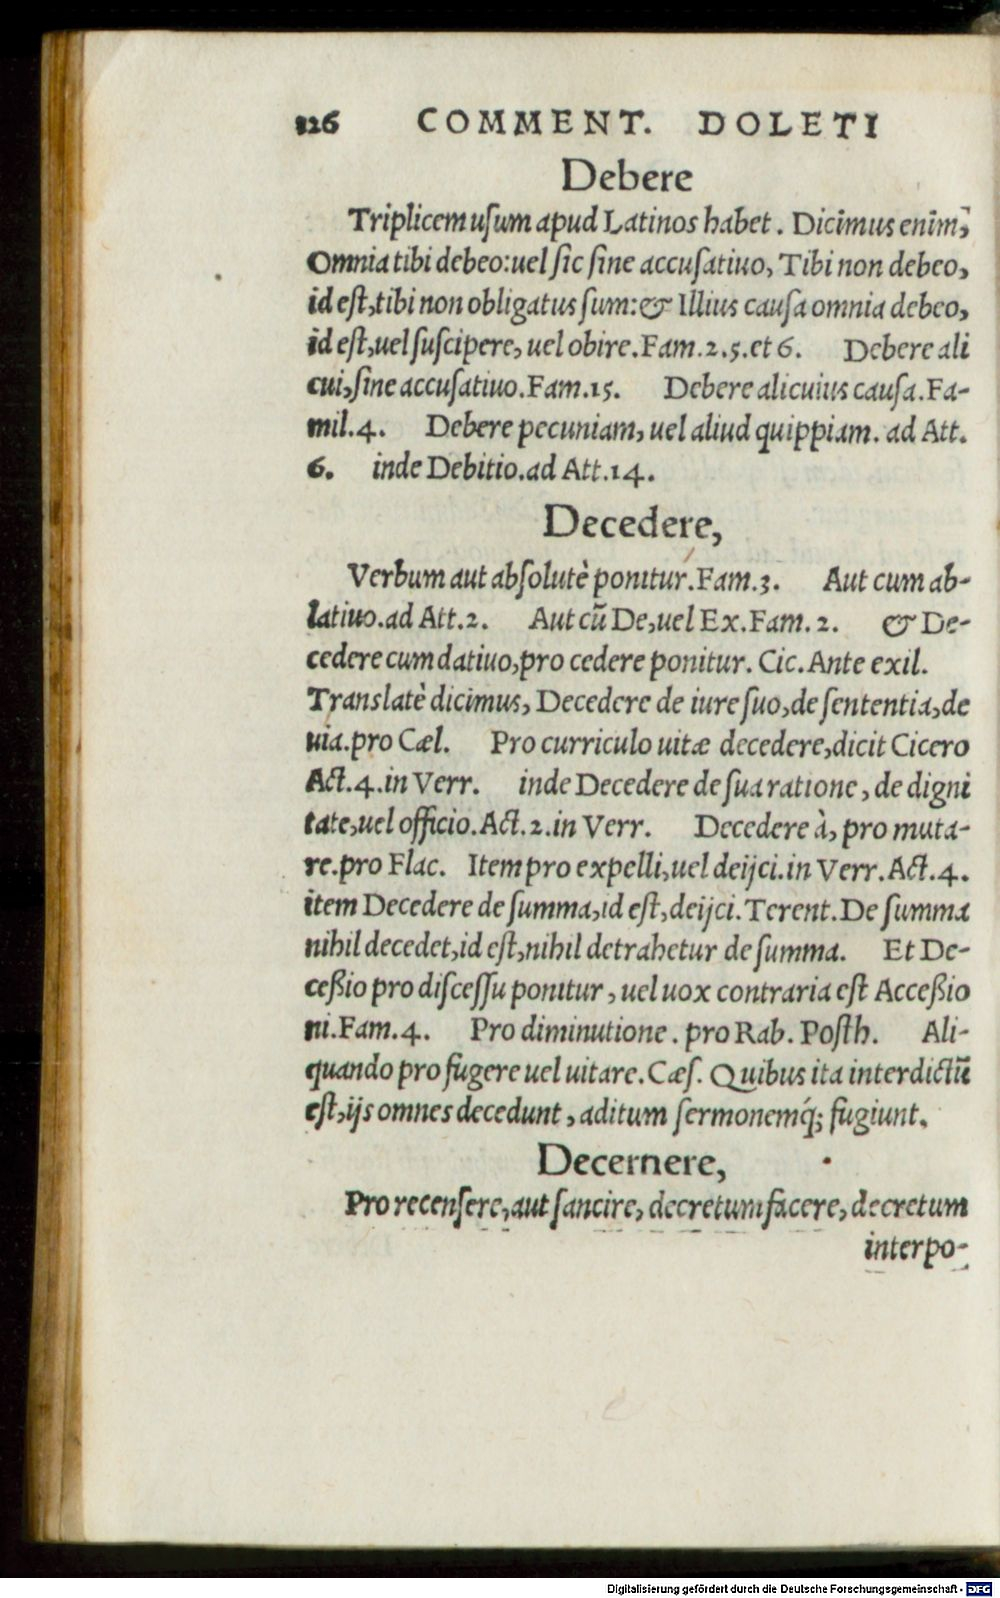 126 COMMENT. DOLETI
Debere
Triplicem uſum apud Latinos habet. Dicimus enim,
Omnia tibi debeo: uel ſic ſine accuſatiuo, Tibi non debeo,
id eſt, tibi non obligatus ſum: & Illius cauſa omnia debeo,
id eſt, uel ſuſcipere, uel obire. Fam. 2. 5. et 6. Debere ali
cui, ſine accuſatiuo. Fam. 15. Debere alicuius cauſa. Fa-
mil. 4. Debere pecuniam, uel aliud quippiam. ad Att.
6. inde Debitio. ad Att. 14.
Decedere,
Verbum aut abſolutè ponitur. Fam. 3. Aut cum ab-
latiuo. ad Att. 2. Aut cū De, uel Ex. Fam. 2. & De-
cedere cum datiuo, pro cedere ponitur. Cic. Ante exil.
Translatè dicimus, Decedere de iure ſuo, de ſententia, de
uia. pro Cæl. Pro curriculo uitæ decedere, dicit Cicero
Act. 4. in Verr. inde Decedere de ſua ratione, de digni
tate, uel officio. Act. 2. in Verr. Decedere à, pro muta-
re. pro Flac. Item pro expelli, uel deijci. in Verr. Act. 4.
item Decedere de ſumma, id eſt, deijci. Terent. De ſumma
nihil decedet, id eſt, nihil detrahetur de ſumma. Et De-
ceßio pro diſceſſu ponitur, uel uox contraria eſt Acceßio
ni. Fam. 4. Pro diminutione. pro Rab. Poſth. Ali-
quando pro fugere uel uitare. Cæſ. Quibus ita interdictū
eſt, ijs omnes decedunt, aditum ſermonemq́; fugiunt.
Decernere,
Pro recenſere, aut ſancire, decretum facere, decretum
interpo-
Digitalisierung gefördert durch die Deutsche Forschungsgemeinschaft - DFG